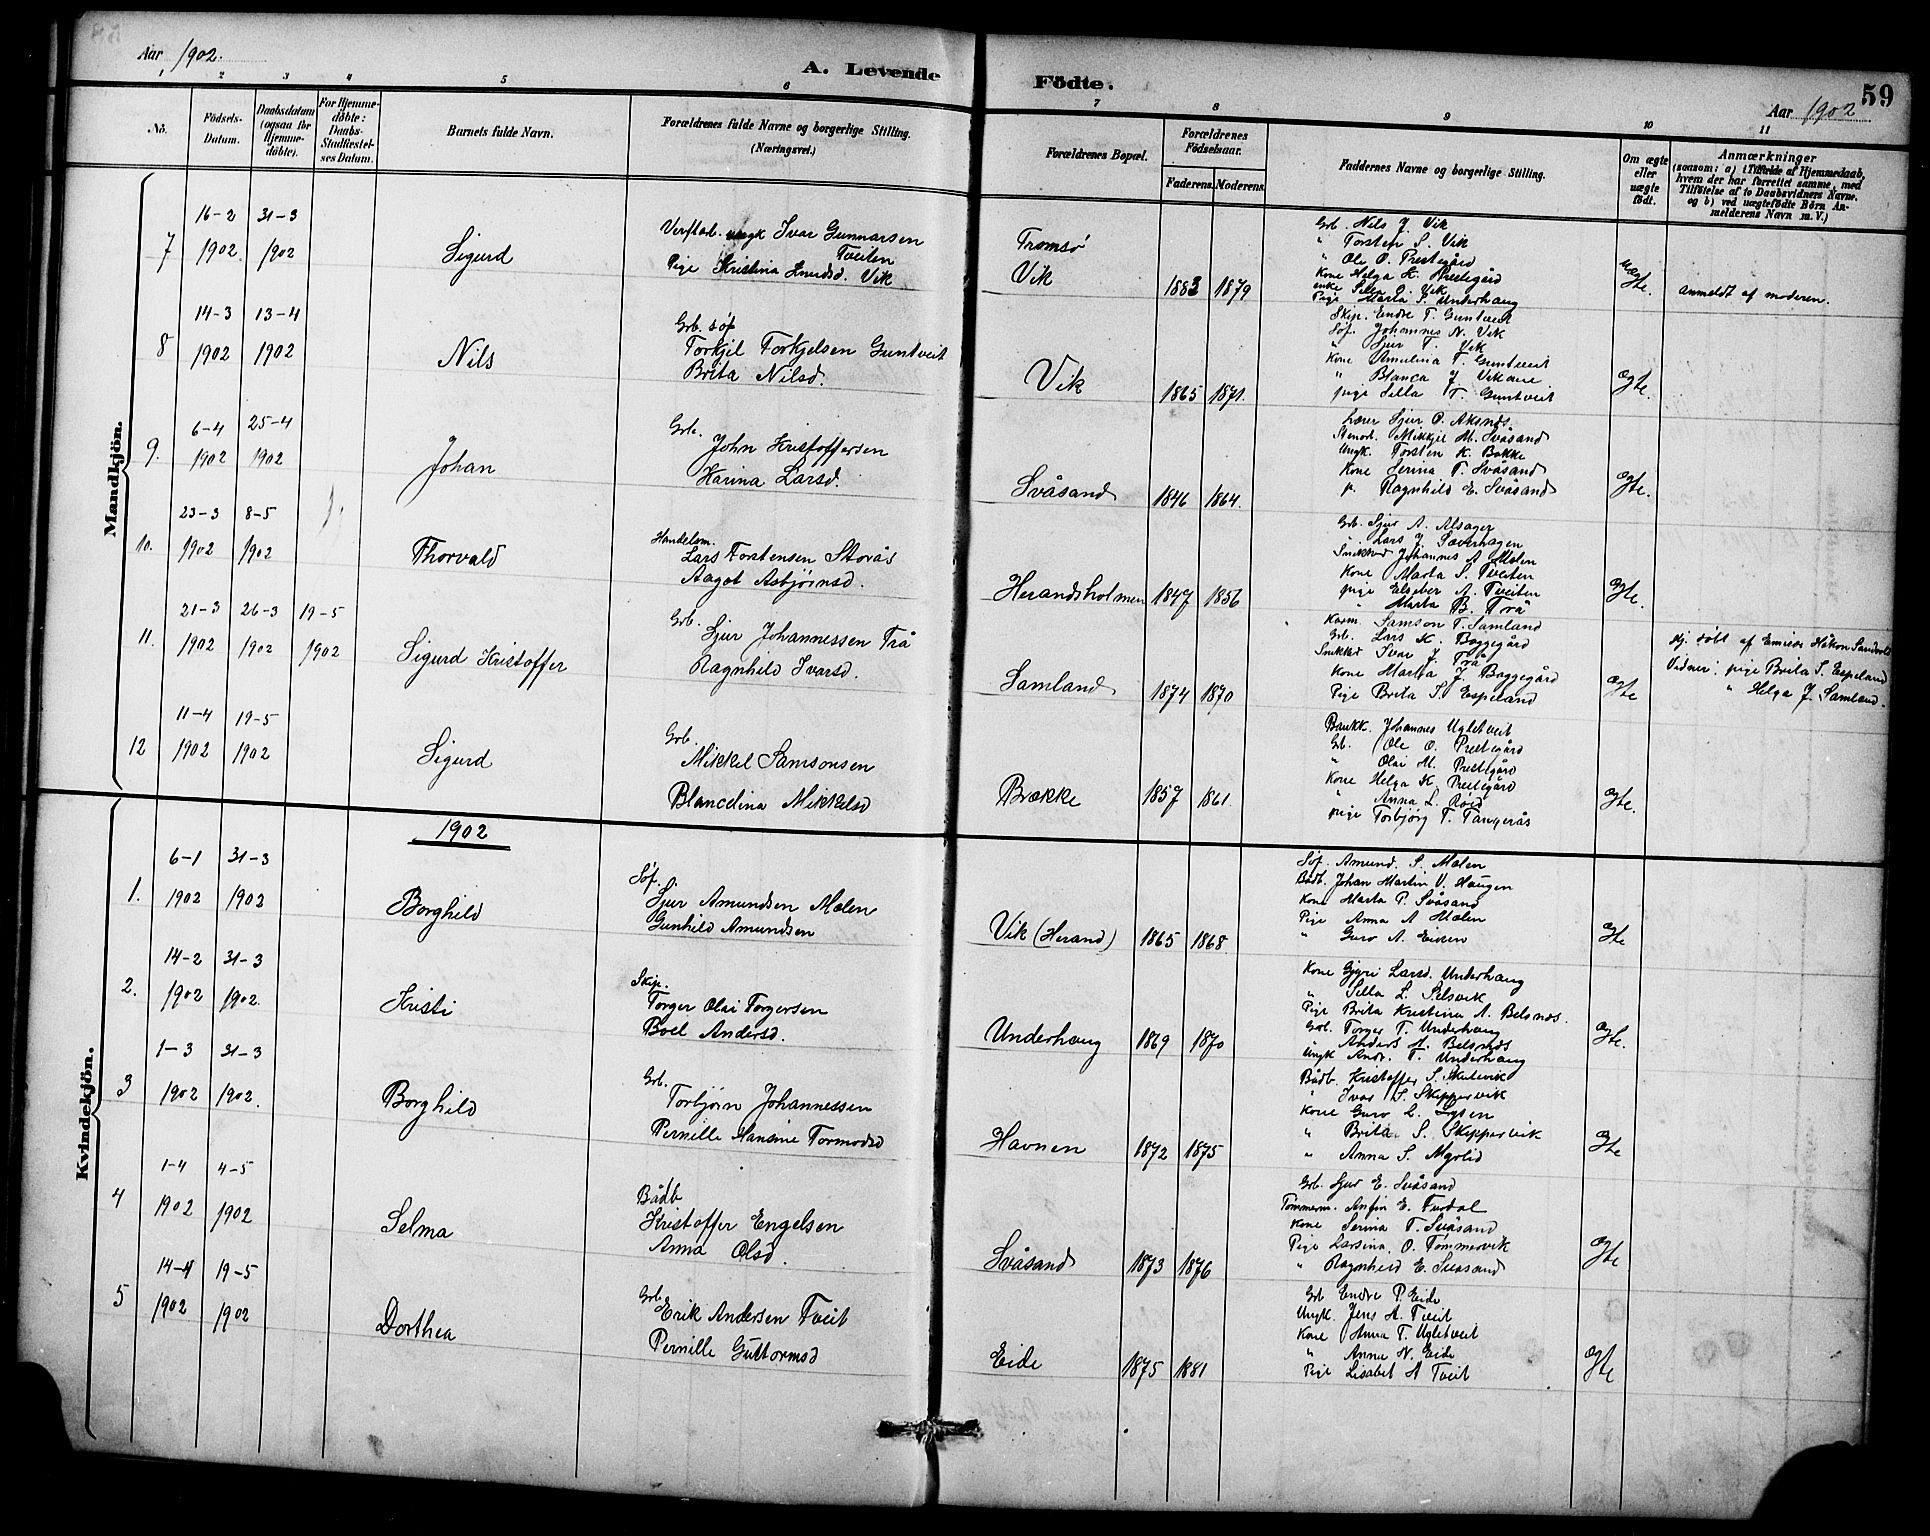 Aar 1902.
A. Levende Födte.
59
Aar 1902
1 2 3 4 5 6 7 8 9 10 11
No.
Födsels-Datum.
Daabsdatum (ogsaa for Hjemmedöbte).
For Hjemmedöbte: Daabs-Stadfæstelses Datum.
Barnets fulde Navn.
Forældrenes fulde Navne og borgerlige Stilling.
(Næringsvei.)
Forældrenes Bopæl.
Forældrenes Födselsaar.
Faderens. Moderens.
Faddernes Navne og borgerlige Stilling.
Om ægte eller uægte födt.
Anmærkninger
(saasom: a) i Tilfælde af Hjemmedaab,
hvem der har forrettet samme, med
Tilföielse af to Daabsvidners Navne.
og b) ved uægtefödte Börn An-
melderens Navn m. V.)
Mandkjön.
7
16-2 1902.
31-3 1902
Sigurd
Verftsd. ungk Ivar Gunnarsen Tveiten
Pige Kristina Knudsd. Vik
Tromsö
Vik
1883 1879
Grb. Nils J. Vik
" Torsten S. Vik
" Ole O. Prestegård
Kone Helga K. Prestegård
enke Silla O. Vik
Pige Marta S. Underhaug
uægte.
Anmeldt af moderen.
8
14-3 1902
13-4 1902
Nils
Grb. söf
Torkjel Torkjelsen Guntveit
Brita Nilsd.
Vik
1865 1871.
Skip. Endre T. Guntveit
Söf. Johannes N. Vik
" Sjur T. Vik
Kone Amelina T. Guntveit
" Blanca J. Vikane
pige Silla T. Guntveit
Ægte.
9.
6-4 1902
25-4 1902
Johan
Grb.
John Kristoffersen
Karina Larsd.
Svåsand
1846 1864.
Lærer Sjur O. Aksnes
Stenarb. Mikkjel M. Svåsand
Ungk. Torsten K. Bakke
Kone Serina T. Svåsand
p. Ragnhild E. Svåsand
Ægte.
10.
23-3 1902
8-5 1902
Thorvald
Handelsm.
Lars Torstensen Storås
Aagot Asbjörnsd.
Herandsholmen
1847 1856
Grb. Sjur A. Alsager
" Lars J. Sæverhagen
Snikker Johannes A. Mælen
Kone Marta S. Tveiten
pige Elseber A. Tveiten
" Marta B. Trå
Ægte.
11.
21-3 1902
26-3 1902
19-5 1902
Sigurd Kristoffer
Grb.
Sjur Johannessen Trå
Ragnhild Ivarsd.
Samland
1874 1870
Samson T. Samland
Grb. Lars K. Boggegård
Snikker Ivar J. Trå
Kone Marta J. Boggegård
Pige Brita S. Espeland
Ægte
Hj. döbt af Emissær Håkon Sandvold
Vidner: pige Brita S. Espeland
" Helga J. Samland.
12
11-4 1902
19-5 1902
Sigurd
Grb.
Mikkel Samsonsen
Blancelina Mikkelsd
Brække
1857 1861.
Johannes Ugletveit
Grb. Ole O. Prestegård
" Olai M. Prestegård
Kone Helga K. Prestegård
" Anna L. Röid
pige Torbjörg T. Tangerås
Ægte.
1902
Kvindekjön.
1.
6-1 1902
31-3 1902
Borghild
Söf.
Sjur Amundsen Mælen
Gunhild Amundsen
Vik (Herand)
1865 1868.
Söf. Amund. S. Mælen
Bådb. Johan Martin V. Haugen
Kone Marta P. Svåsand
Pige Anna A Mælen
" Guro A. Eiken
Ægte
2.
14-2 1902
31-3 1902.
Kristi
Skip.
Torger Olai Torgersen
Boel Andersd.
Underhaug
1869 1870
Kone Gjyri Larsd. Underhaug
" Silla L. Selsvik
Pige Brita Kristina A. Belsnes.
Grb. Torger T. Underhaug
" Anders H. Belsnes
Ungk Andr. T. Underhaug
Ægte.
3
1-3 1902
31-3 1902.
Borghild
Grb.
Torbjörn Johannessen
Pernille Hansine Tormodsd
Havnen
1872 1875
Bådb. Kristoffer S. Skutevik
" Ivar S. Skippervik
Kone Guro L. Lysen
" Brita S. Skippervik
" Anna S. Myrlid
Ægte
4
1-4 1902
4-5 1902
Selma
Bådb
Kristoffer Engelsen
Anna Olsd.
Svåsand
1873 1876
Grb. Sjur E. Svåsand
Tömmerm. Anfin E. Furdal
Kone Serina T. Svåsand
Pige Larsina O. Tömmervik
" Ragnhild E. Svåsand
Ægte
5
14-4 1902
19-5 1902
Dorthea
Grb.
Erik Andersen Tveit
Pernille Guttormsd
Eide
1875 1881
Grb Endre P. Eide
Ungk. Jens A. Tveit
Kone Anna T. Ugletveit
" Anna N. Eide
Pige Lisabet A Tveit
Ægte